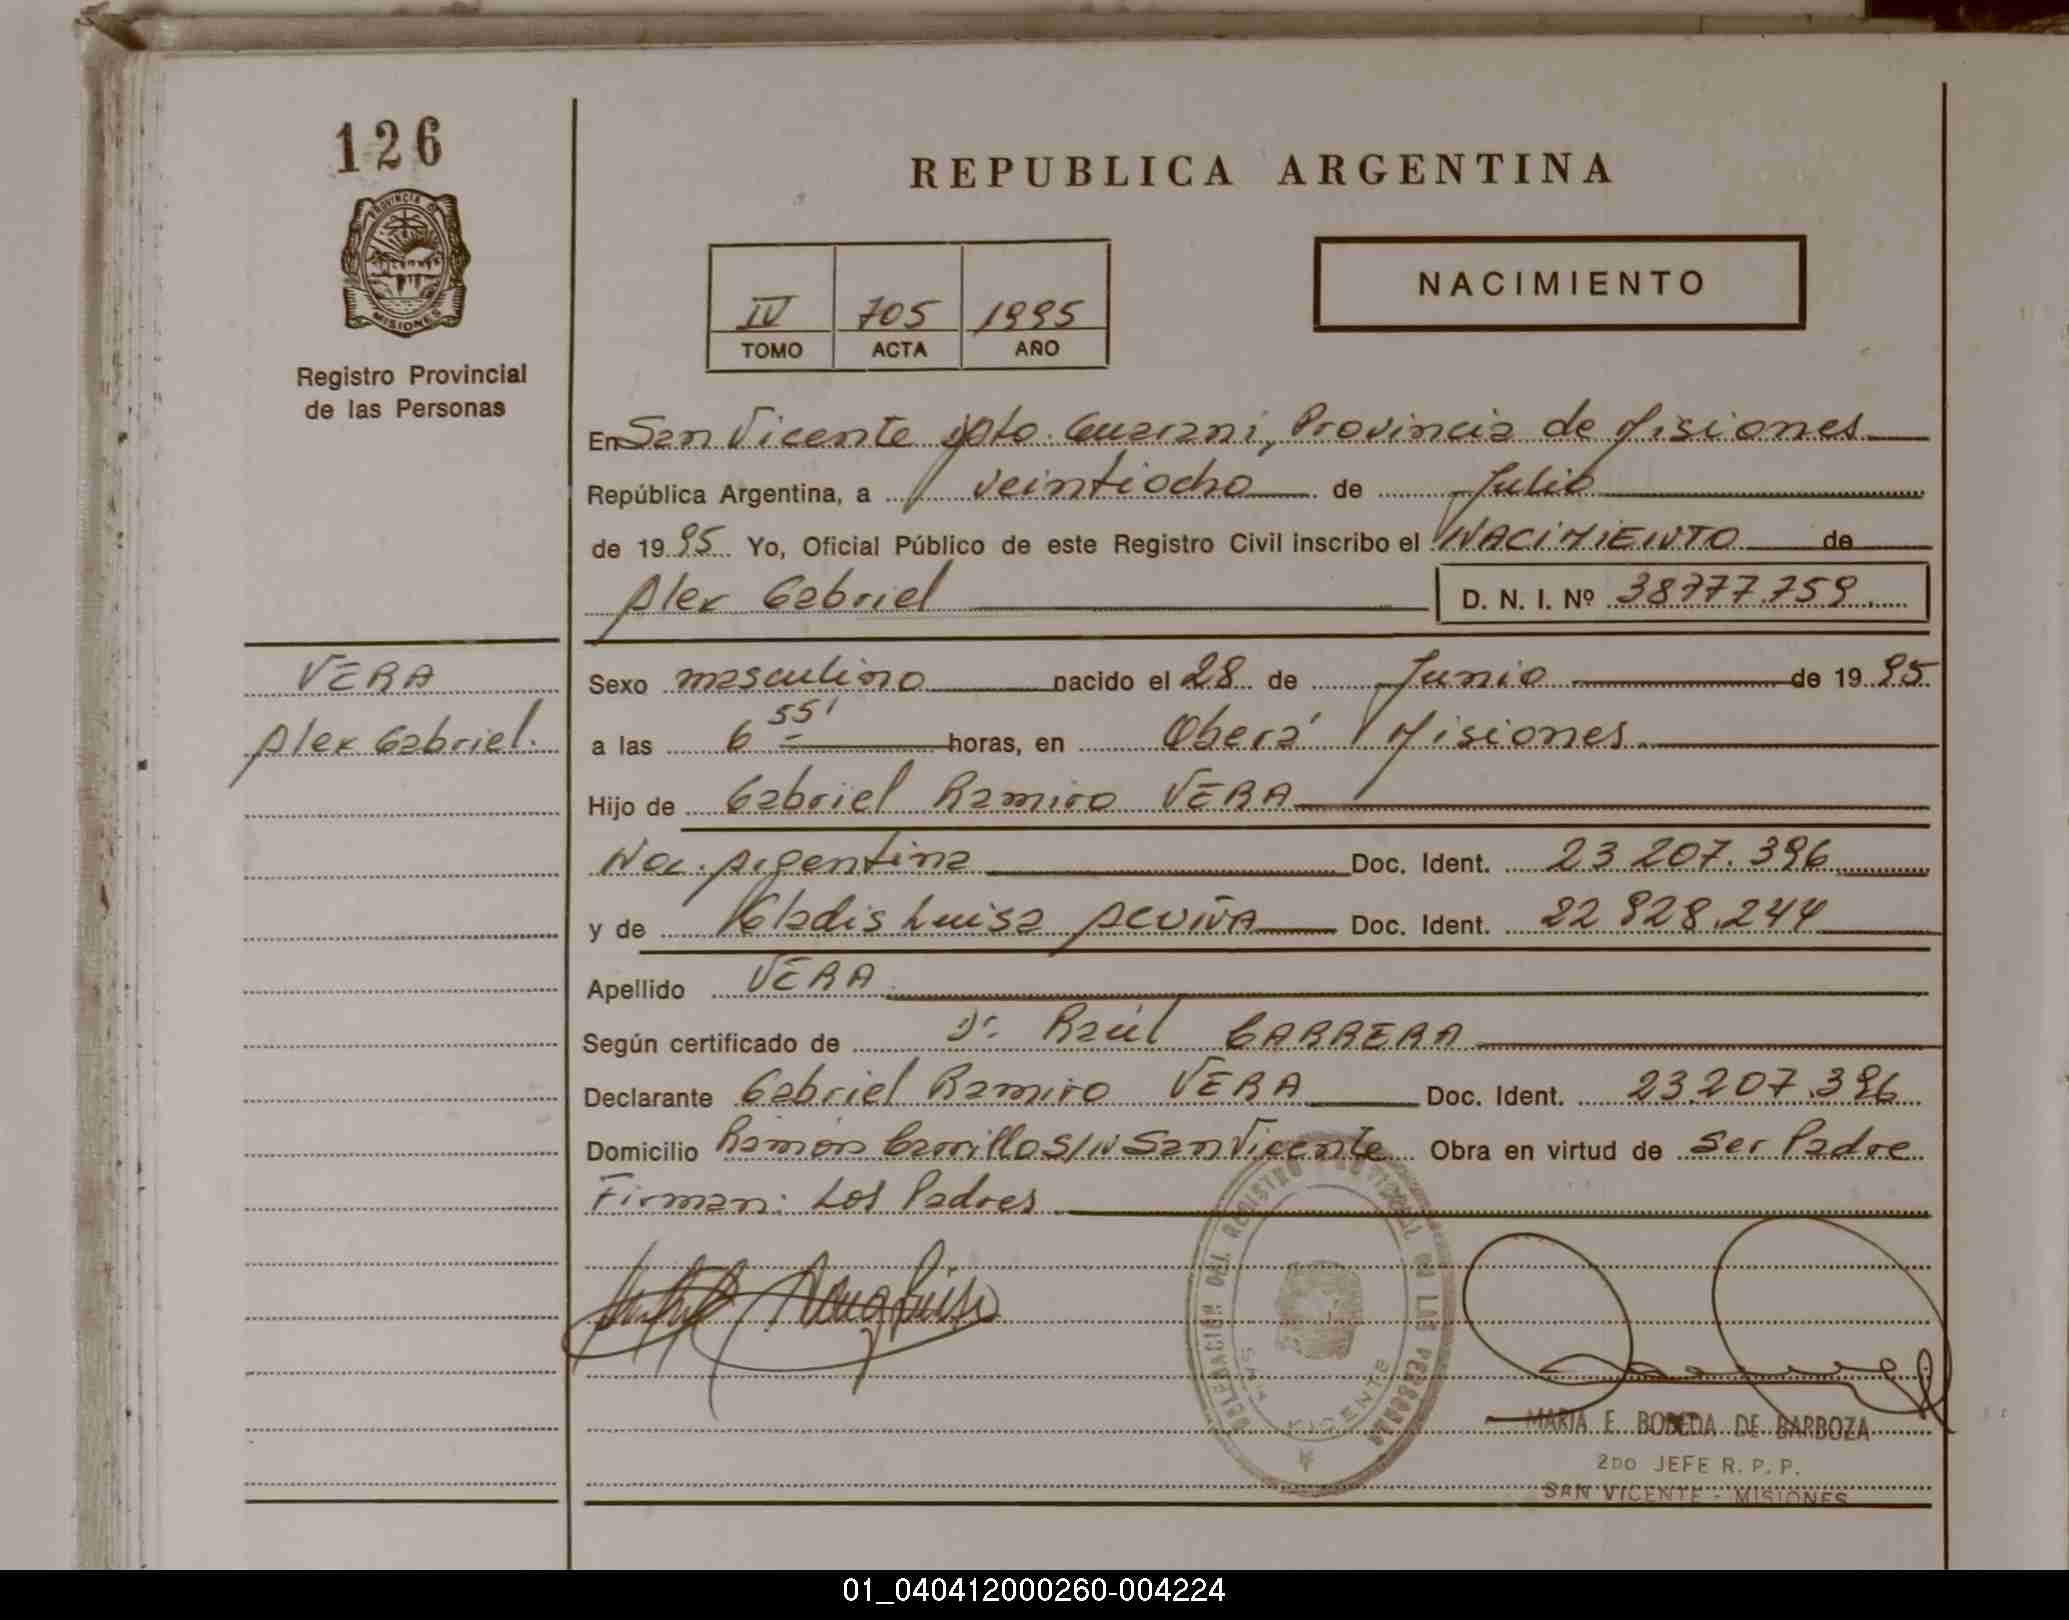 126
PROVINCIA DE
MISIONES
Registro Provincial
de las Personas
REPUBLICA ARGENTINA
IV 705 1995
TOMO ACTA AÑO
NACIMIENTO
En San Vicente Dpto. Guarani, Provincia de Misiones
República Argentina, a veintiocho de Julio
de 1995 Yo, Oficial Público de este Registro Civil inscribo el NACIMIENTO de
Alex Gabriel D. N. I. Nº 38777.759
VERA
Alex Gabriel.
Sexo masculino nacido el 28 de Junio de 1995
a las 6 55' horas, en Oberá Misiones
Hijo de Gabriel Ramiro VERA
Nac. Argentina Doc. Ident. 23.207.396
y de Gladis Luisa ACUÑA Doc. Ident. 22.928.244
Apellido VERA
Según certificado de Dr. Raúl CARRERA
Declarante Gabriel Ramiro VERA Doc. Ident. 23.207.396
Domicilio Ramón Carrillo S/N San Vicente Obra en virtud de Ser Padre
Firman: Los Padres
DELEGACION DEL REGISTRO PROVINCIAL DE LAS PERSONAS
SAN VICENTE
MARIA E. BOBEDA DE BARBOZA
2DO JEFE R. P. P.
SAN VICENTE - MISIONES
01_040412000260-004224